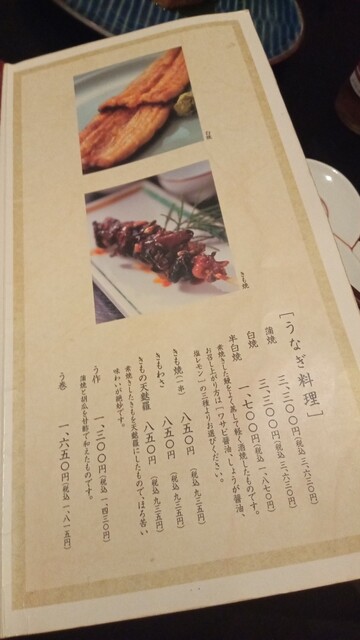 白焼
きも焼
[うなぎ料理]
蒲焼 三、三〇〇円(税込 三、六三〇円)
白焼 三、三〇〇円(税込 三、六三〇円)
半白焼 一、七〇〇円(税込 一、八七〇円)
素焼きした鰻をよく蒸して軽く酒焼したものです。
お召し上がり方は「ワサビ醤油、しょうが醤油、
塩レモン」の三種よりお選びください。
きも焼(一串) 八五〇円(税込 九三五円)
きもわさ 八五〇円(税込 九三五円)
きもの天麩羅 八五〇円(税込 九三五円)
素焼きしたきもを天麩羅にしたもので、ほろ苦い
味わいが絶妙です。
う作 一、三〇〇円(税込 一、四三〇円)
蒲焼と胡瓜を甘酢で和えたものです。
う巻 一、六五〇円(税込 一、八一五円)